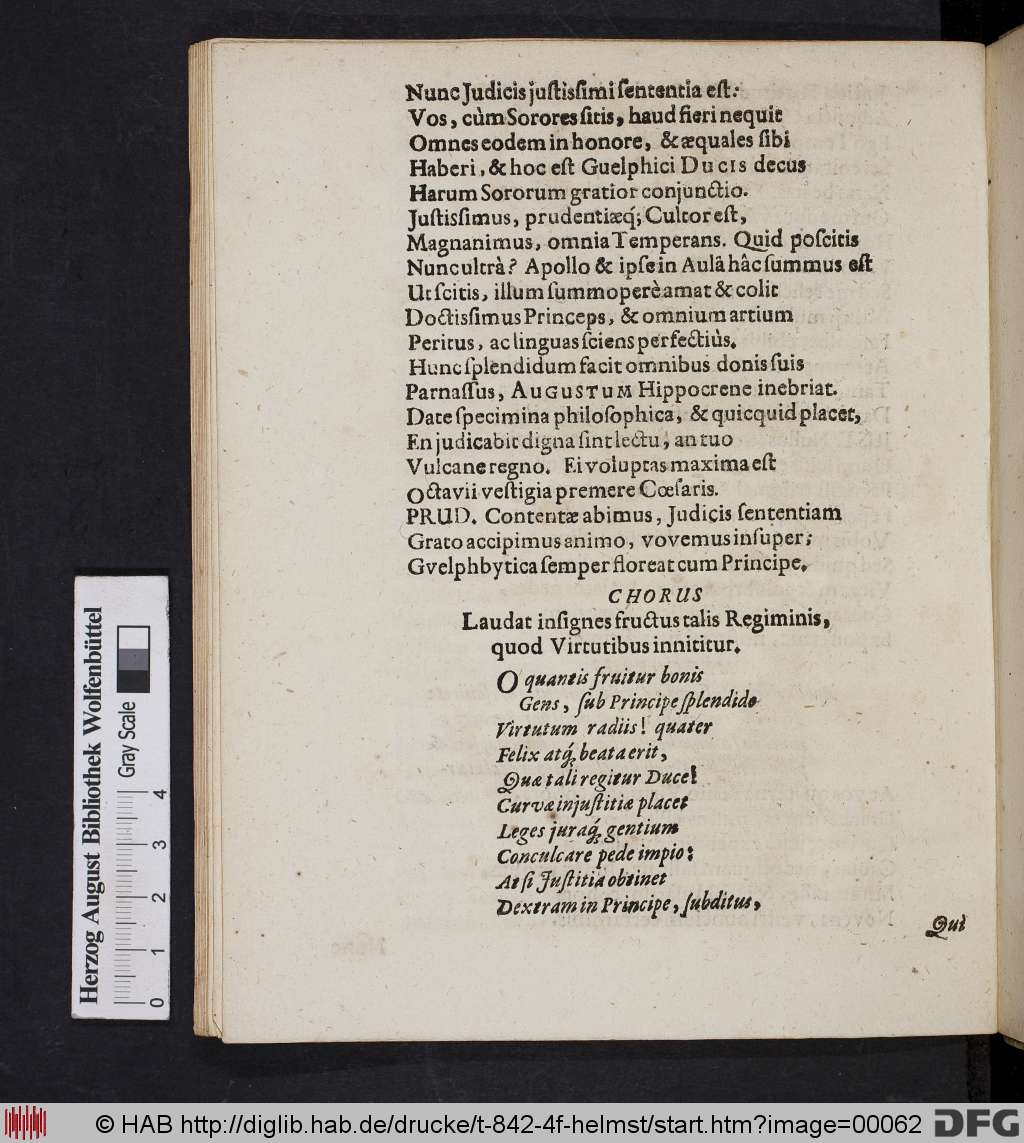 Nunc Judicis justissimi sententia est:
Vos, cùm Sorores sitis, haud fieri nequit
Omnes eodem in honore, & æquales sibi
Haberi, & hoc est Guelphici Ducis decus
Harum Sororum gratior conjunctio.
Justissimus, prudentiæq́; Cultor est,
Magnanimus, omnia Temperans. Quid poscitis
Nunc ultrà? Apollo & ipse in Aulâ hâc summus est
Ut scitis, illum summoperè amat & colit
Doctissimus Princeps, & omnium artium
Peritus, ac linguas sciens perfectiùs.
Hunc splendidum facit omnibus donis suis
Parnassus, AUGUSTUM Hippocrene inebriat.
Date specimina philosophica, & quicquid placet,
En judicabit digna sint lectu, an tuo
Vulcane regno. Ei voluptas maxima est
Octavii vestigia premere Cœsaris.
PRUD. Contentæ abimus, Judicis sententiam
Grato accipimus animo, vovemus insuper;
Gvelphbytica semper floreat cum Principe.
CHORUS
Laudat insignes fructus talis Regiminis,
quod Virtutibus innititur.
O quantis fruitur bonis
Gens, sub Principe splendido
Virtutum radiis! quater
Felix atq́; beata erit,
Quæ tali regitur Duce!
Curvæ injustitiæ placet
Leges juraq́; gentium
Conculcare pede impio:
At si Justitia obtinet
Dextram in Principe, subditus,
Qui
Herzog August Bibliothek Wolfenbüttel
Gray Scale
0 1 2 3 4
© HAB http://diglib.hab.de/drucke/t-842-4f-helmst/start.htm?image=00062
DFG